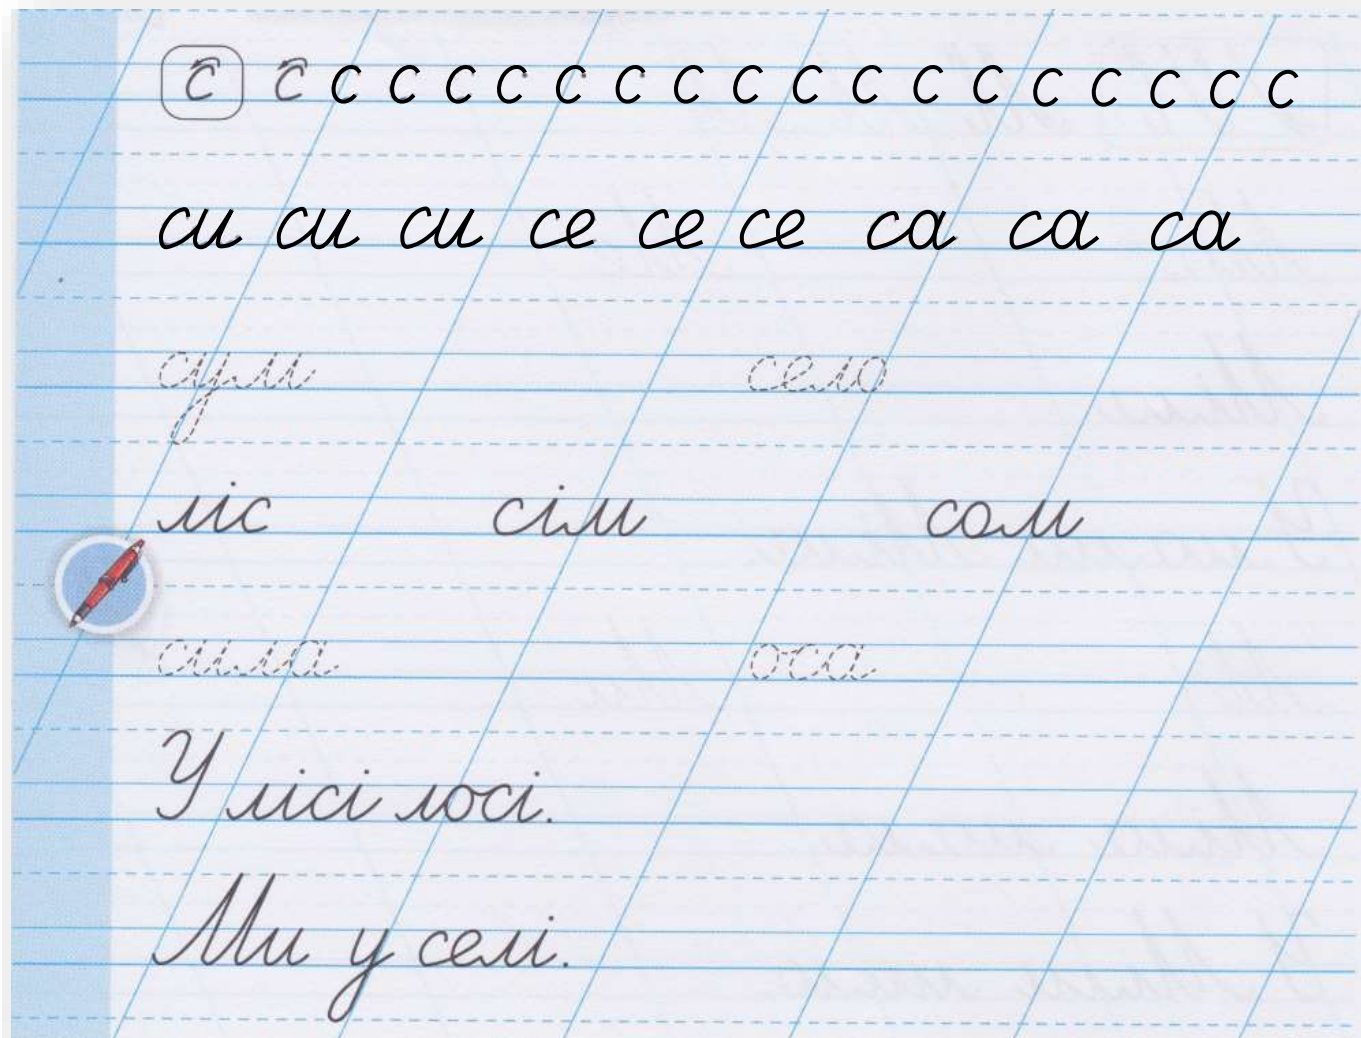 с с с с с с с с с с с с с с с с с с с
си си си се се се са са са
сум село
ліс сім сом
сила оса
У лісі лосі.
Ми у селі.